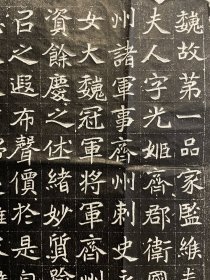 魏故第一品家監
夫人字光姬齊郡衛國
州諸軍事齊州刺史
女大魏冠軍將軍齊州
資餘慶之休緒妙質
召之遐布聲價於是自